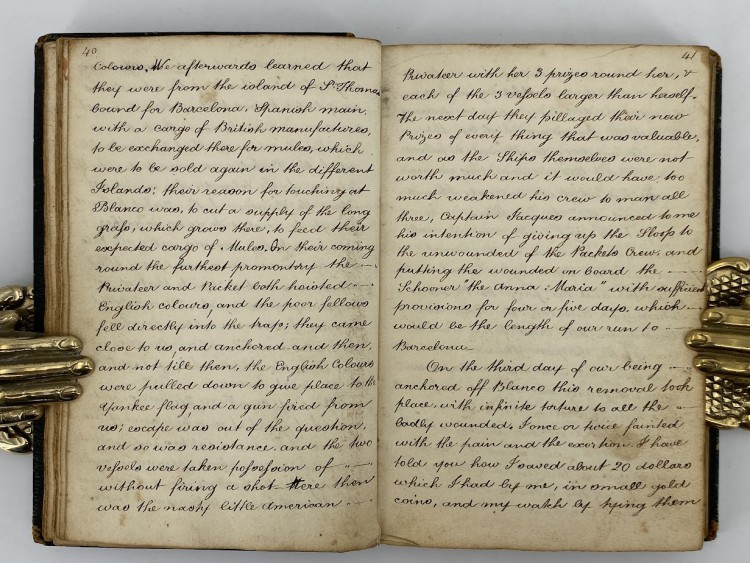 40
Colours. We afterwards learned that
they were from the island of St. Thomas
bound for Barcelona, Spanish main,
with a cargo of British manufactures,
to be exchanged there for mules, which
were to be sold again in the different
Islands; their reason for touching at
Blanco was, to cut a supply of the long
grass, which grows there, to feed their
expected cargo of Mules. On their coming
round the furthest promontory the
Privateer and Packet both hoisted
English colours, and the poor fellows
fell directly into the trap; they came
close to us, and anchored and then,
and not till then, the English Colours
were pulled down to give place to the
Yankee flag and a gun fired from
us; escape was out of the question,
and so was resistance. and the two
vessels were taken possession of
without firing a shot – Here then
was the nasty little American
41
Privateer with her 3 prizes round her, &
each of the 3 vessels larger than herself.
The next day they pillaged their new
Prizes of every thing that was valuable,
and as the Ships themselves were not
worth much and it would have too
much weakened his crew to man all
three, Captain Jacques announced to me
his intention of giving up the Sloop to
the unwounded of the Packets Crew, and
putting the wounded on board the
Schooner "the Anna Maria" with sufficient
provisions for four or five days, which
would be the length of our run to
Barcelona –
On the third day of our being
anchored off Blanco this removal took
place, with infinite torture to all the
badly wounded. I once or twice fainted
with the pain and the exertion. I have
told you how I saved about 20 dollars
which I had by me, in small gold
coins, and my watch by tying them